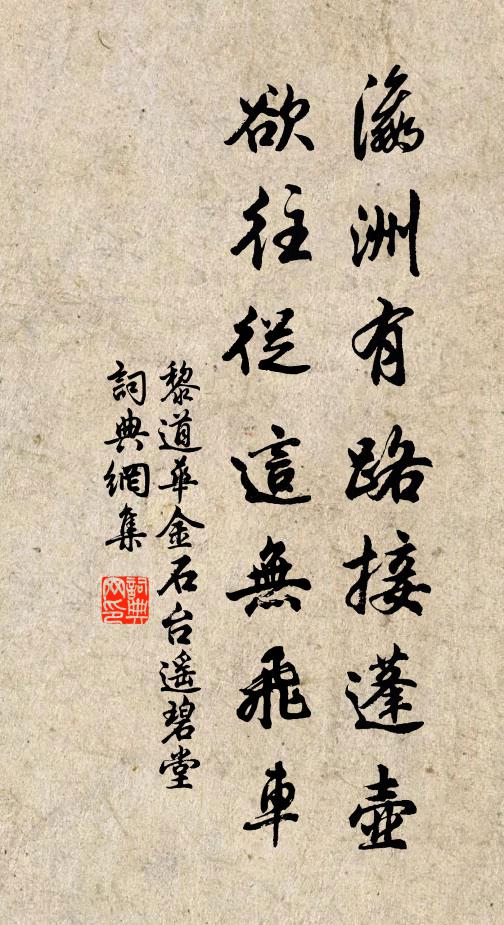 瀛洲有路接蓬壺
欲往從這無飛車
黎道華金石台遥碧堂
詞典網集
詞典網印